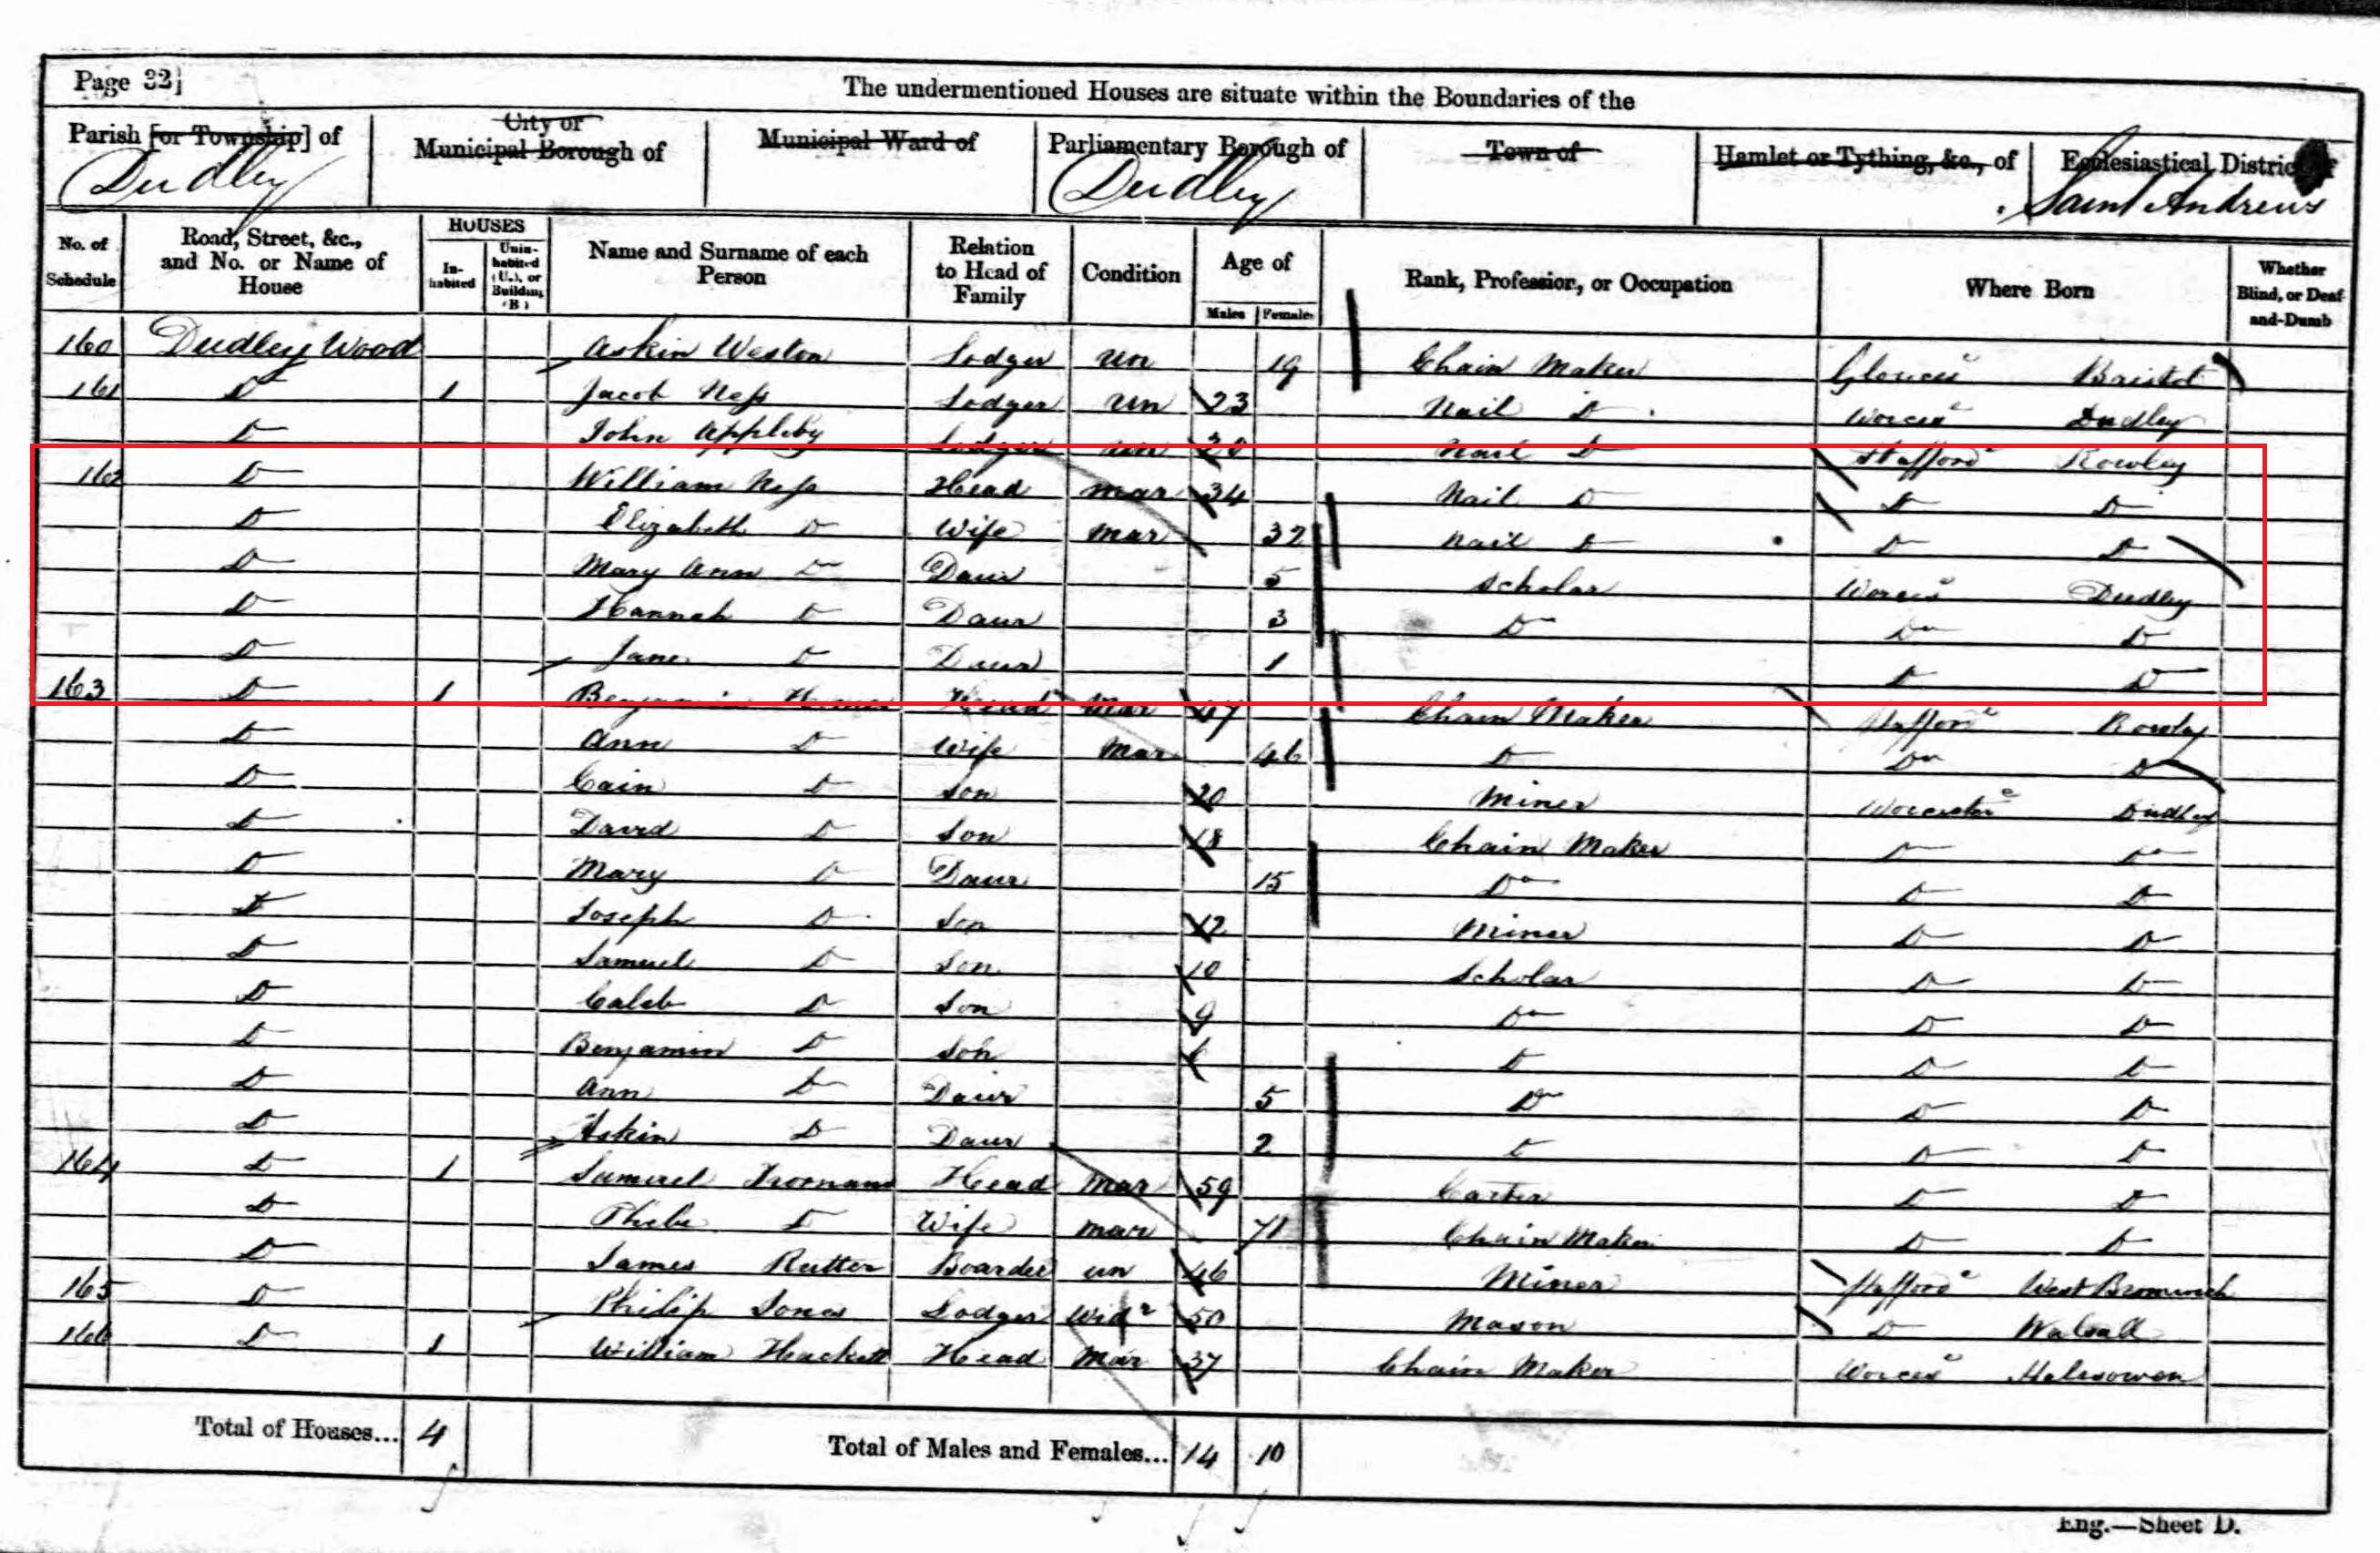 Page 32
The undermentioned Houses are situate within the Boundaries of the
Parish [or Township] of
City or Municipal Borough of
Municipal Ward of
Parliamentary Borough of
Town of
Hamlet or Tything, &c., of
Ecclesiastical District of
Dudley Dudley Saint Andrews
No. of Schedule
Road, Street, &c., and No. or Name of House
HOUSES
In-habited
Unin-habited (U.), or Building (B)
Name and Surname of each Person
Relation to Head of Family
Condition
Age of
Males Females
Rank, Profession, or Occupation
Where Born
Whether Blind, or Deaf-and-Dumb
160 Dudley Wood Askin Weston Lodger un 19 Chain Maker Glouces Bristol
161 D 1 Jacob Ness Lodger un 23 Nail D Worces Dudley
D John Appleby Lodger un Nail D Stafford Rowley
162 D William Ness Head mar 34 Nail D D D
D Elizabeth D Wife mar 32 Nail D D D
D Mary Ann D Daur 5 Scholar Worces Dudley
D Hannah D Daur 3 Do Do D
D Jane D Daur 1 D D
163 D 1 Benjamin Head Mar 47 Chain Maker Stafford Rowley
D Ann D Wife Mar 46 D Do D
D Cain D Son 20 Miner Worcester Dudley
D David D Son 18 Chain Maker D Do
D Mary D Daur 15 Do D D
D Joseph D Son 12 Miner D D
D Samuel D Son 10 Scholar D D
D Caleb D Son 9 Do D D
D Benjamin D Son D D D
D Ann D Daur 5 Do D D
D Askin D Daur 2 D D D
164 D 1 Samuel Head Mar 59 Carter D D
D Phebe D Wife mar 71 Chain Maker D D
D James Rutter Boarder un 46 Miner Stafford West Bromwich
165 D Philip Jones Lodger Widr 50 Mason D Walsall
166 D 1 William Hackett Head Mar 37 Chain Maker Worces Halesowen
Total of Houses... 4
Total of Males and Females... 14 10
Eng.—Sheet D.